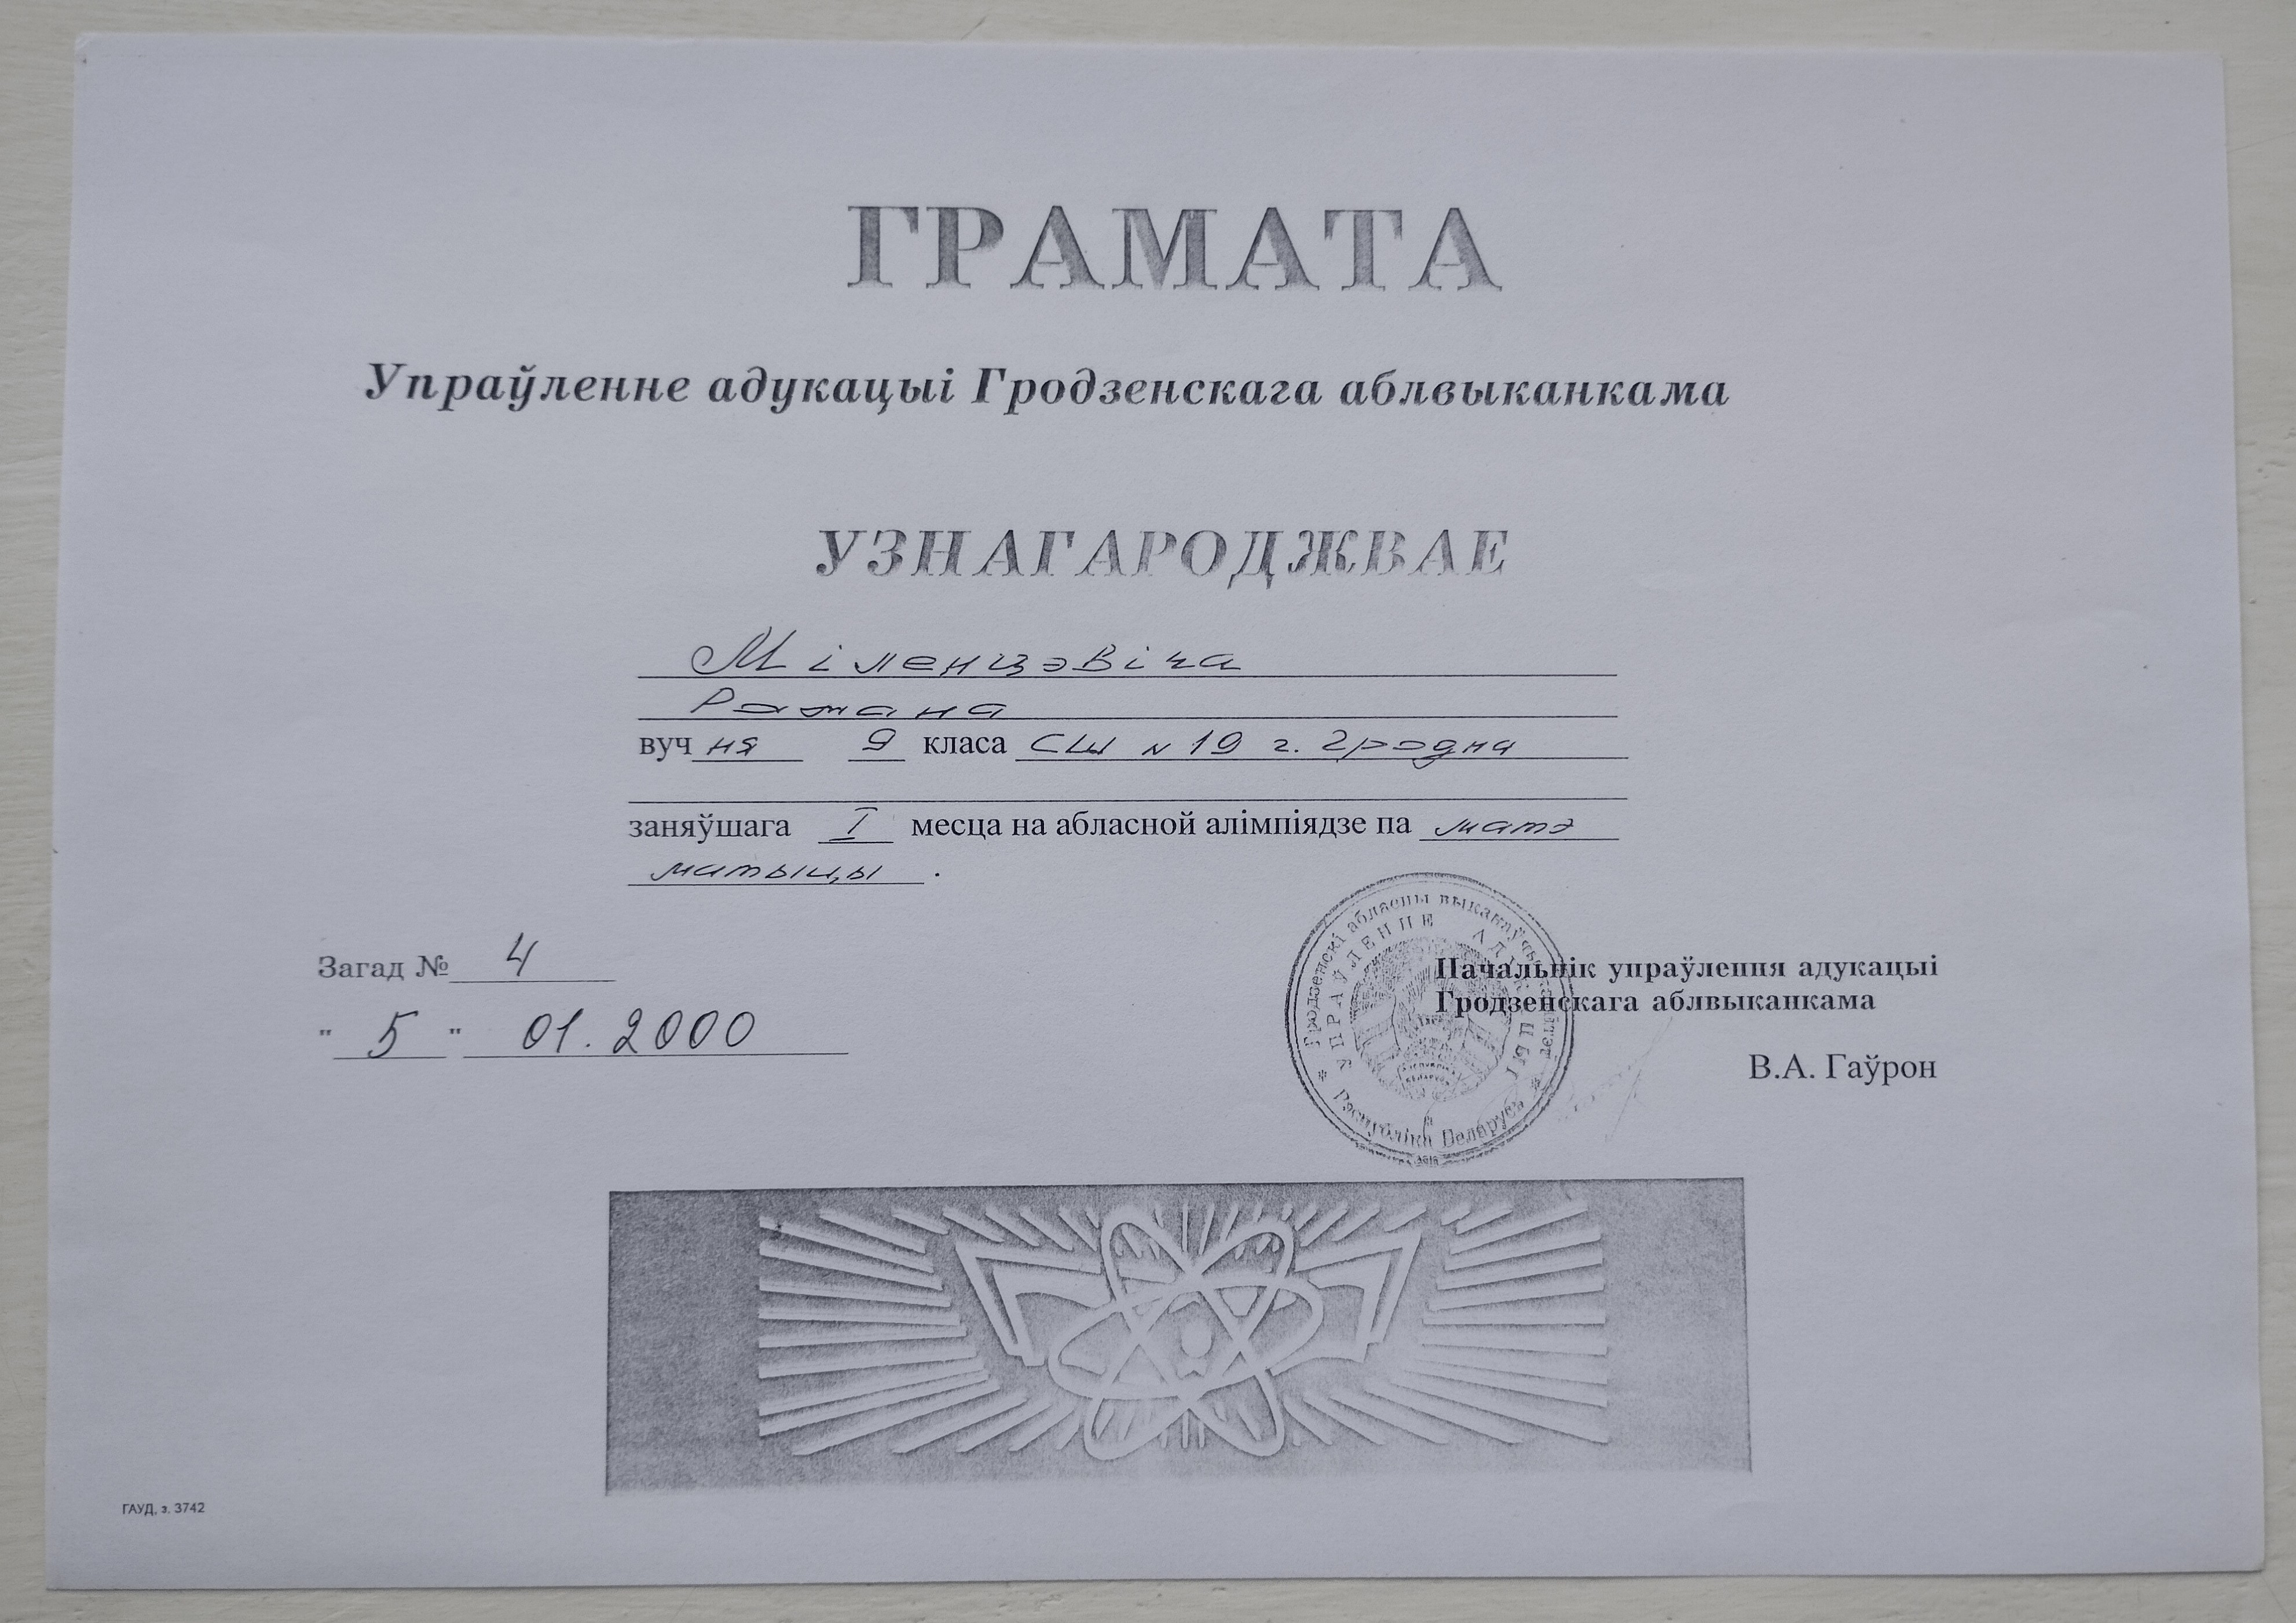 ГРАМАТА
Упраўленне адукацыі Гродзенскага аблвыканкама
УЗНАГАРОДЖВАЕ
Міленцэвіча
Рамана
вучня 9 класа СШ N 19 г. Гродна
заняўшага I месца на абласной алімпіядзе па матэ
матыцы .
Загад № 4
" 5 " 01.2000
Гродзенскі абласны выканаўчы камітэт
УПРАЎЛЕННЕ АДУКАЦЫІ
* Рэспубліка Беларусь *
Начальнік упраўлення адукацыі
Гродзенскага аблвыканкама
В.А. Гаўрон
ГАУД, з. 3742